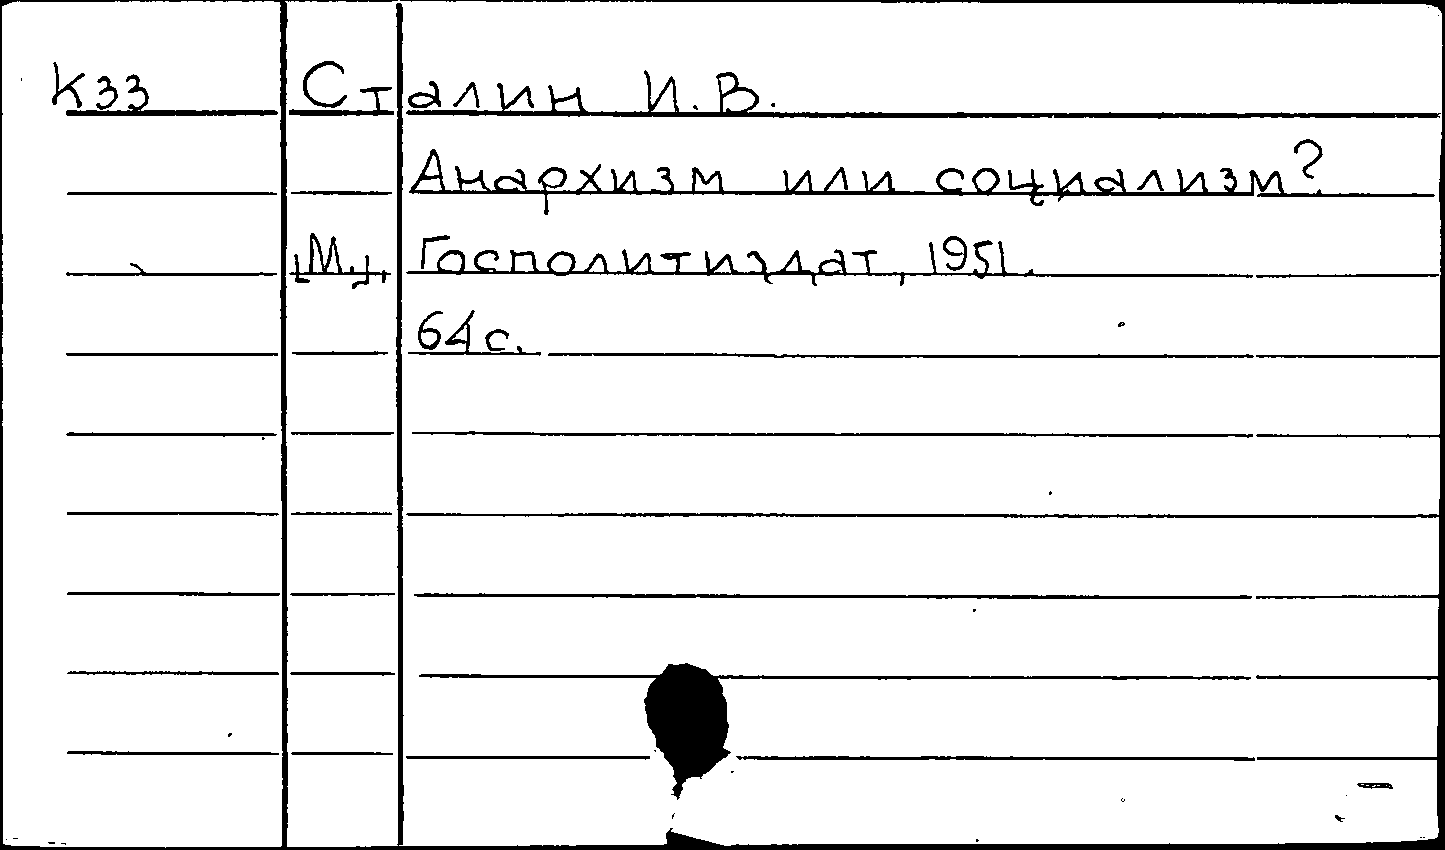 К33 Сталин И.В.
Анархизм или социализм?
[М.], Госполитиздат, 1951.
64 с.